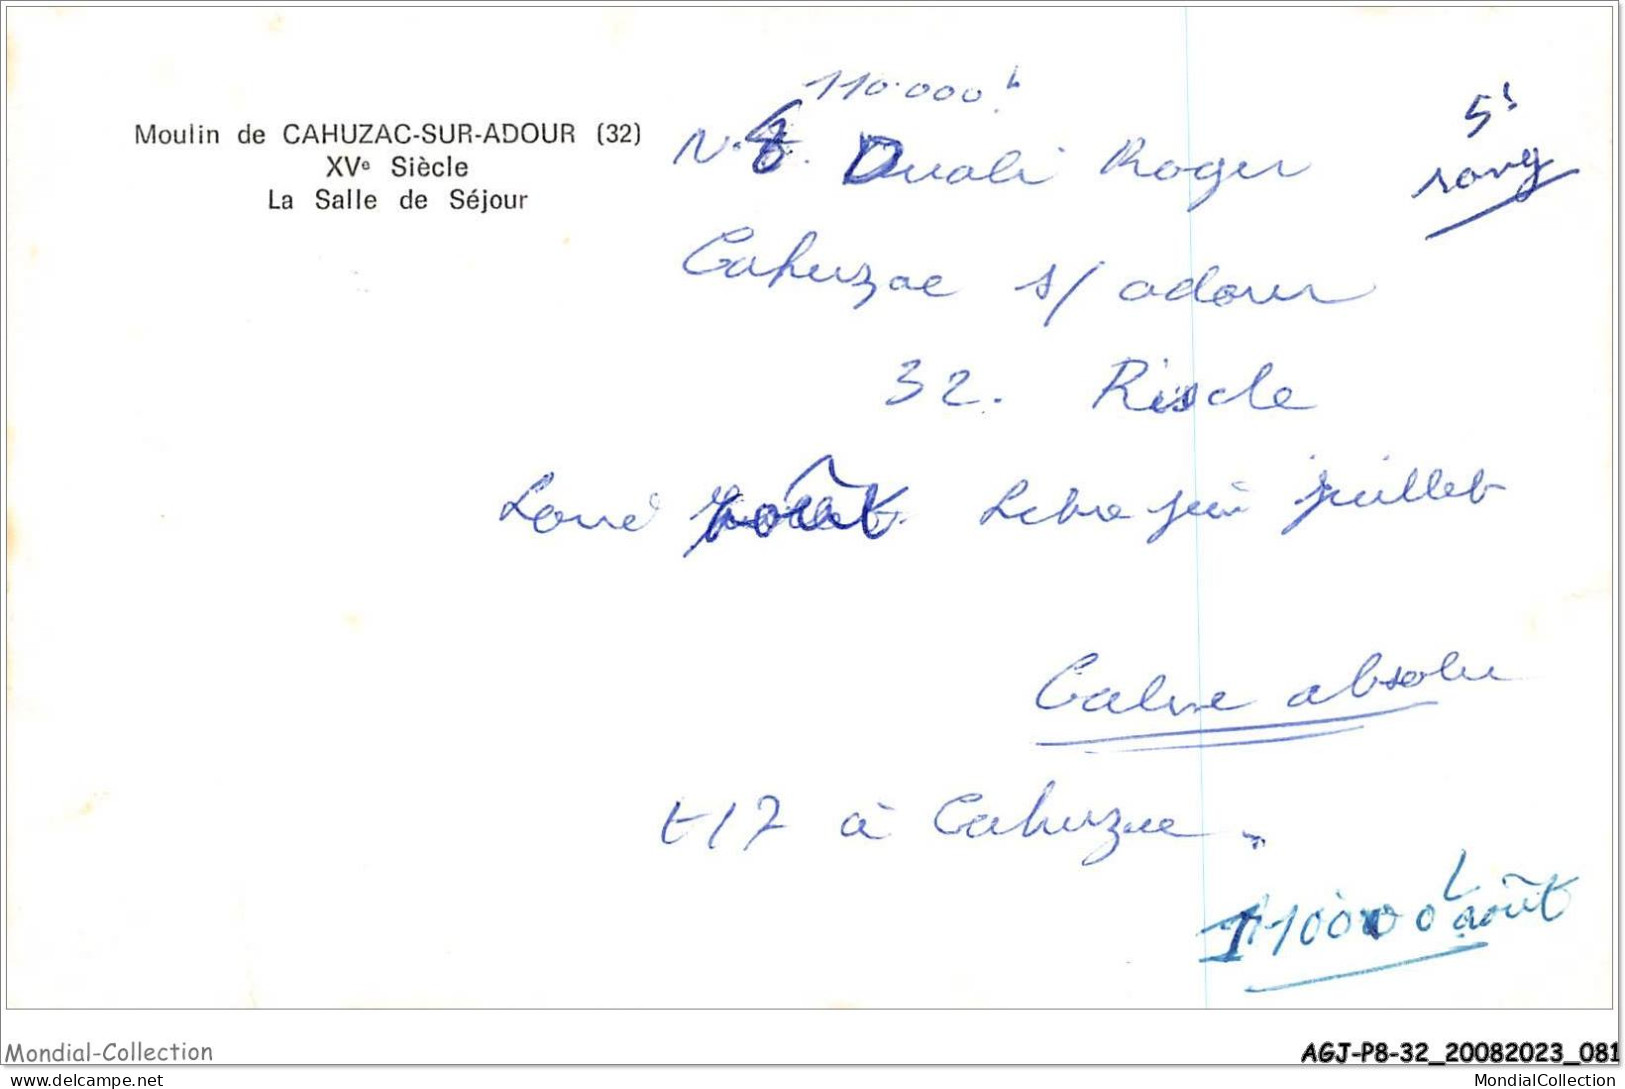 Moulin de CAHUZAC-SUR-ADOUR (32)
XVe Siècle
La Salle de Séjour
110.000
5
rang
N. 8. Duali Roger
Cahuzac s/ adour
32. Riscle
Loué août. Libre juin juillet
Calme absolu
t 17 à Cahuzac
110000 août
Mondial-Collection
AGJ-P8-32_20082023_081
delcampe.net
MondialCollection